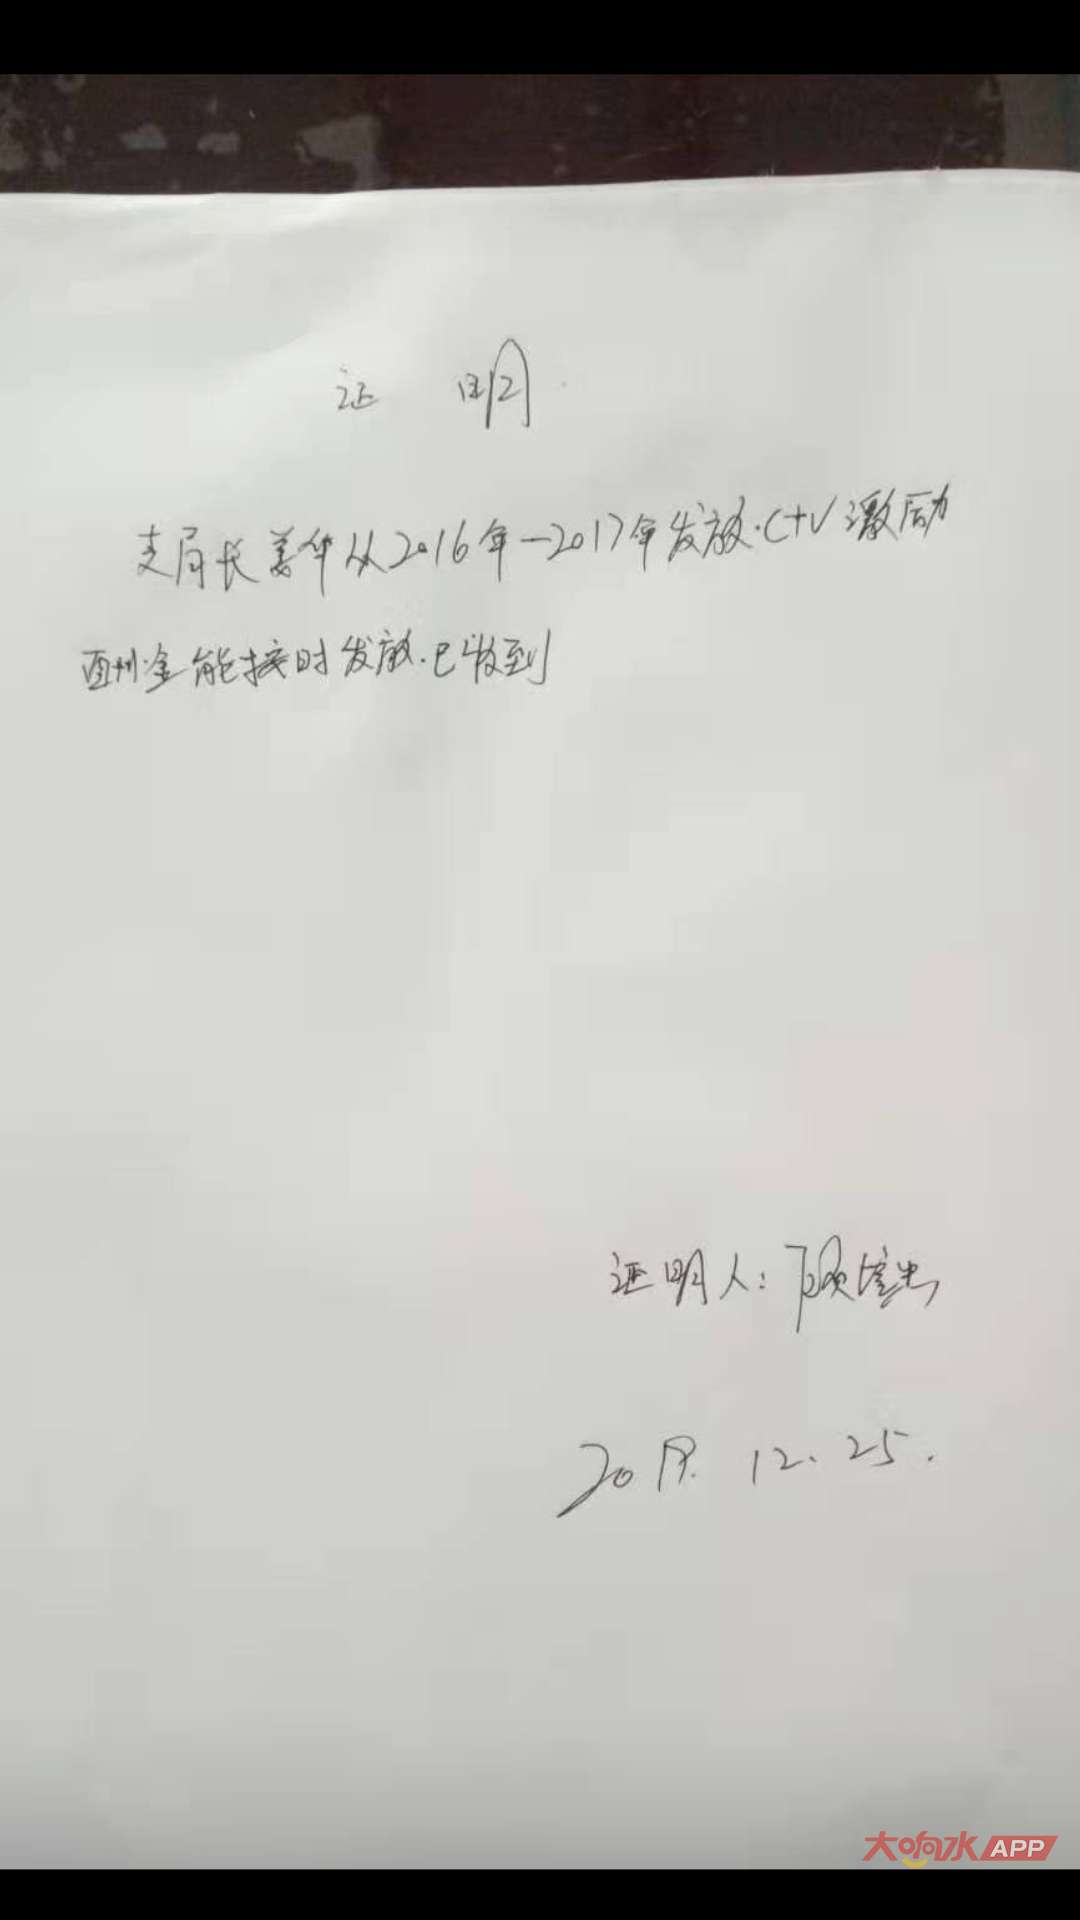 证 明
支局长姜华从2016年—2017年发放.C+V激励
酬金能按时发放.已收到
证明人:顾
12.25.
大响水APP